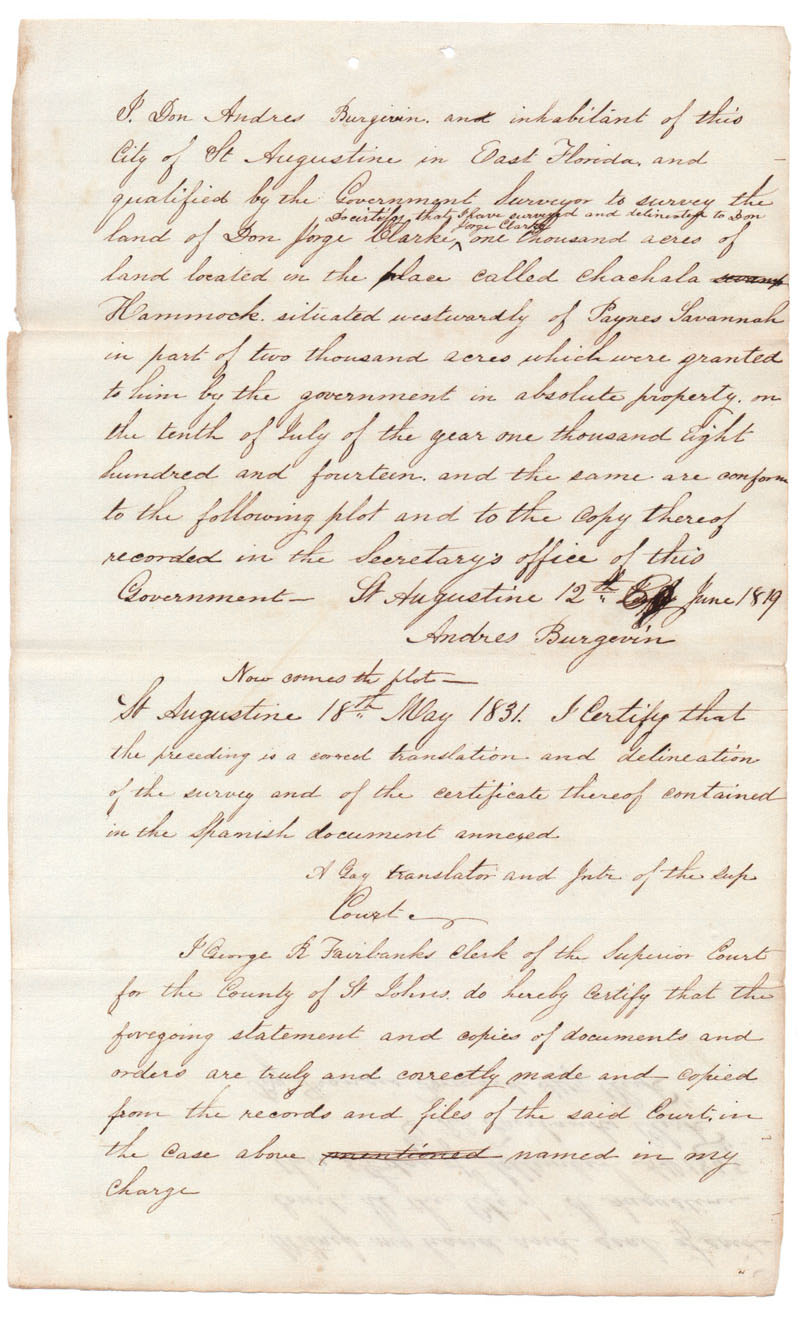 I. Don Andres Burgevin. and inhabitant of this
City of St Augustine in East Florida, and
qualified by the Government Surveyor to survey the
Do certify that I have surveyed and delineated to Don
Jorge Clarke
land of Don Jorge Clarke, ^ one thousand acres of
land located in the place called Chachala swamp
Hammock. situated westwardly of Paynes Savannah
in part of two thousand acres which were granted
to him by the government in absolute property. on
the tenth of July of the year one thousand Eight
hundred and fourteen. and the same are conform
to the following plot and to the copy thereof
recorded in the Secretary's office of this
Government — St Augustine 12th June 1819
Andres Burgevin
Now comes the plot —
St Augustine 18th May 1831. I Certify that
the preceding is a correct translation and delineation
of the survey and of the certificate thereof contained
in the Spanish document annexed
A Gay translator and Intr of the Sup
Court
I George R Fairbanks Clerk of the Superior Court
for the County of St Johns. do hereby Certify that the
foregoing statement and copies of documents and
orders are truly and correctly made and copied
from the records and files of the said Court, in
the case above mentioned named in my
charge